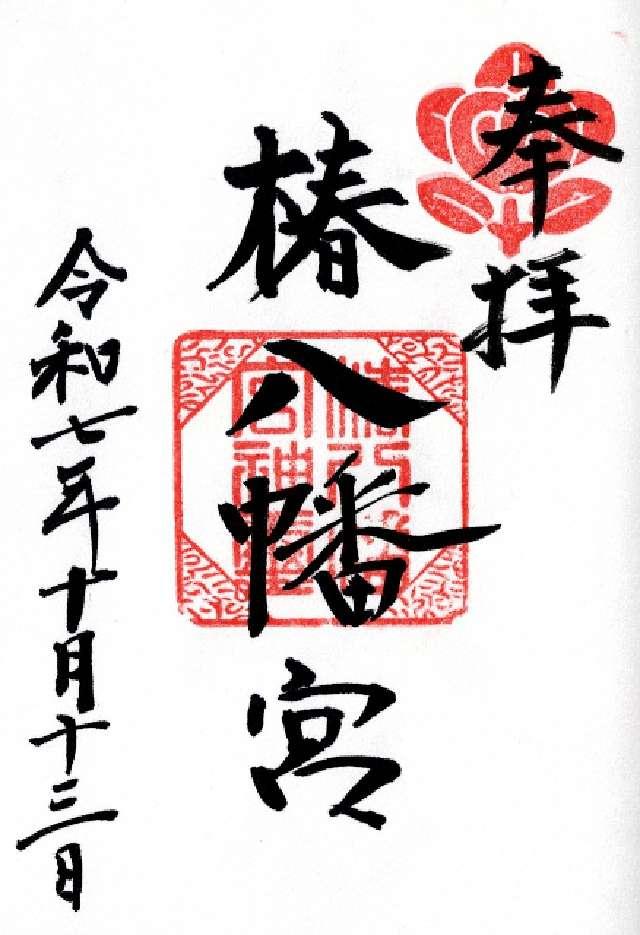 奉拝
椿八幡宮
令和七年十月十三日